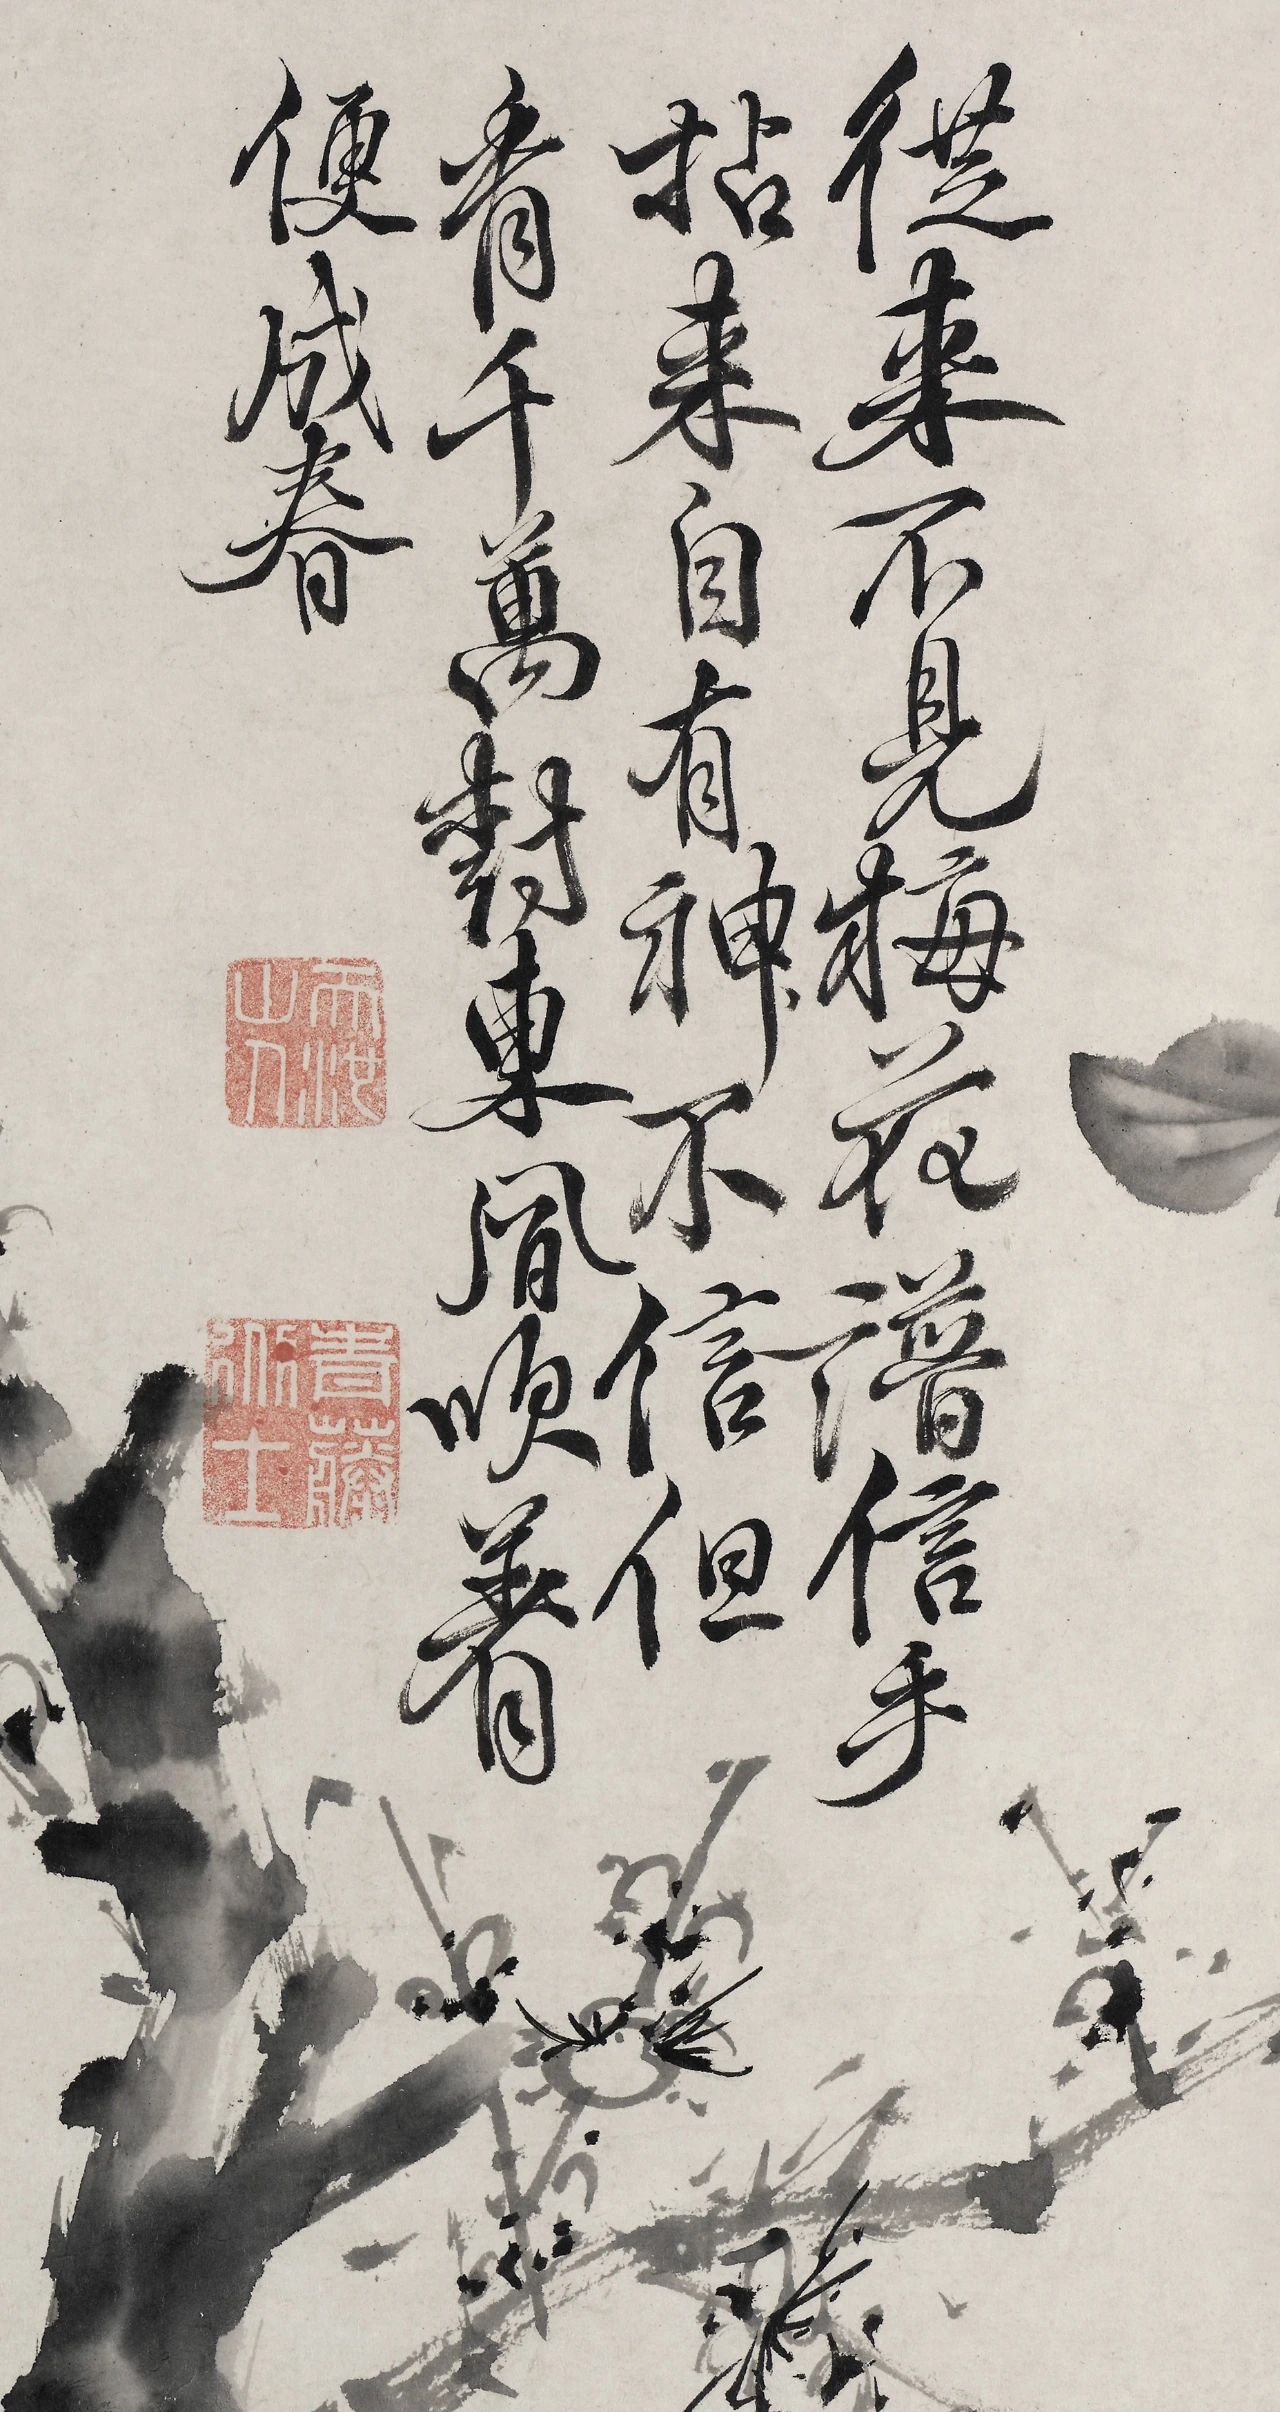 從来不見梅花譜信手
拈来自有神不信但
看千萬樹東風吹着
便成春
天池山人
青藤道士